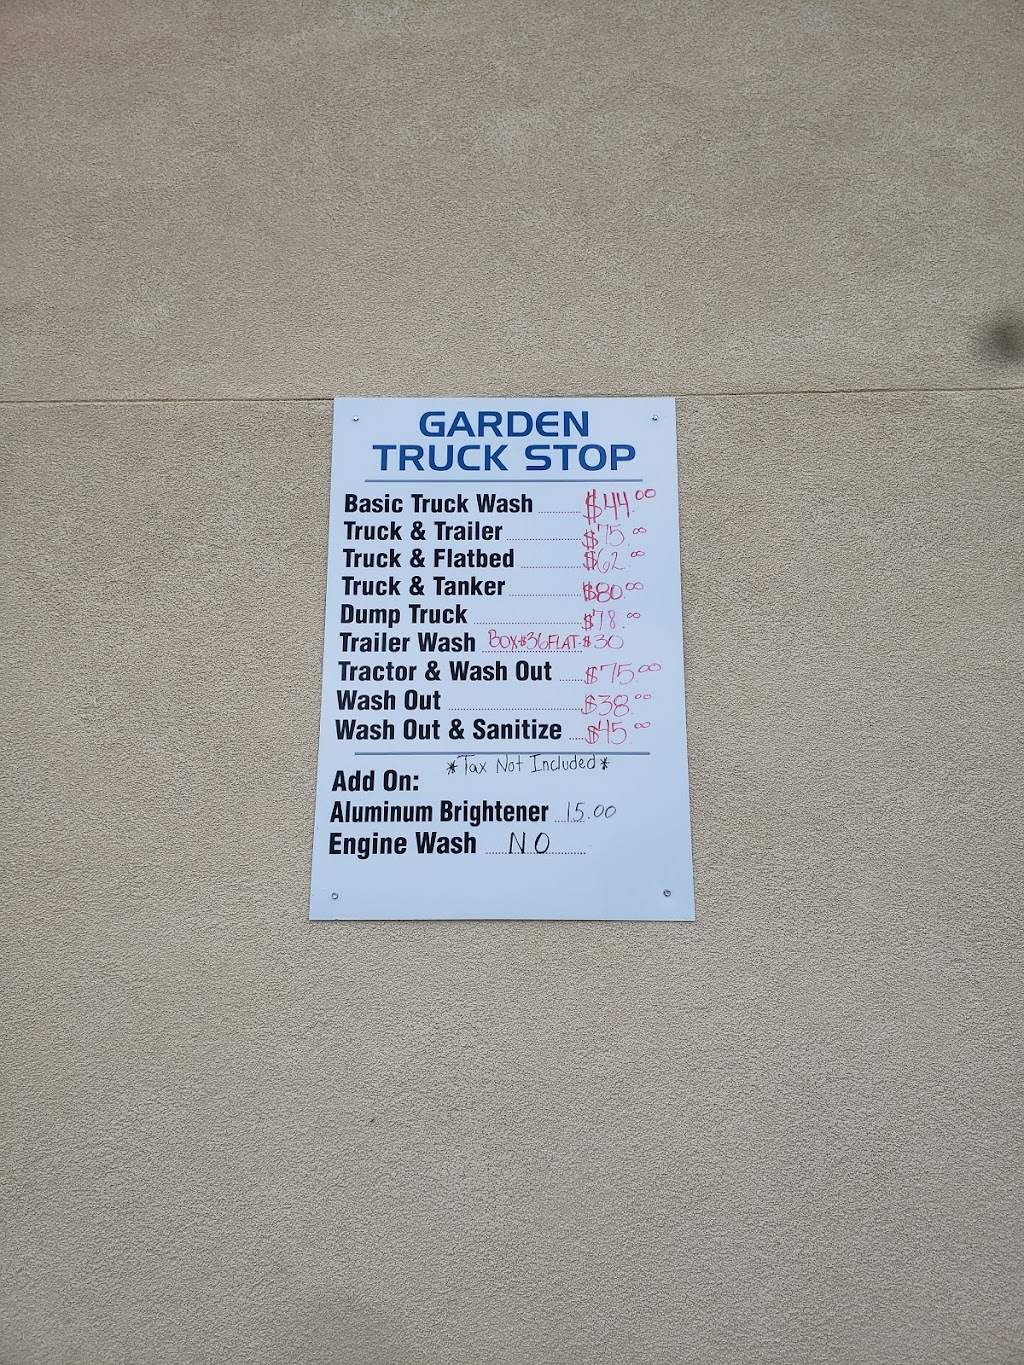 GARDEN
TRUCK STOP
Basic Truck Wash $44.00
Truck & Trailer $75.00
Truck & Flatbed $62.00
Truck & Tanker $80.00
Dump Truck $78.00
Trailer Wash BOX-$36 FLAT-$30
Tractor & Wash Out $75.00
Wash Out $38.00
Wash Out & Sanitize $45.00
*Tax Not Included*
Add On:
Aluminum Brightener 15.00
Engine Wash NO